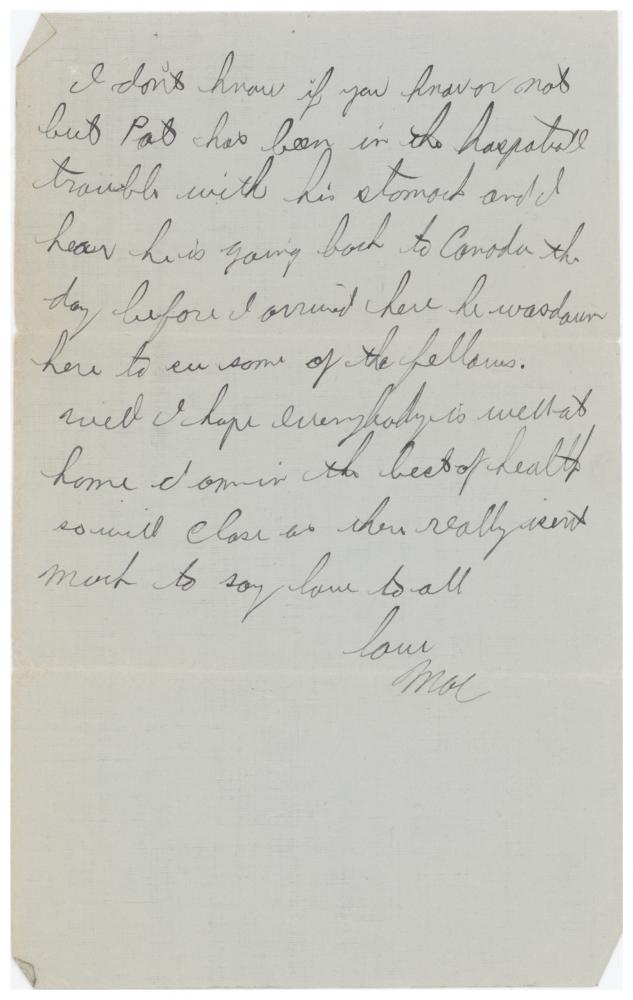 I don't know if you know or not
but Pat has been in the haspatall
trouble with his stomach and I
hear he is going back to Canada the
day before I arrived here he was down
here to see some of the fellows.
well I hope everybody is well at
home I am in the best of health
so will close as there really isent
much to say love to all
love
Mac